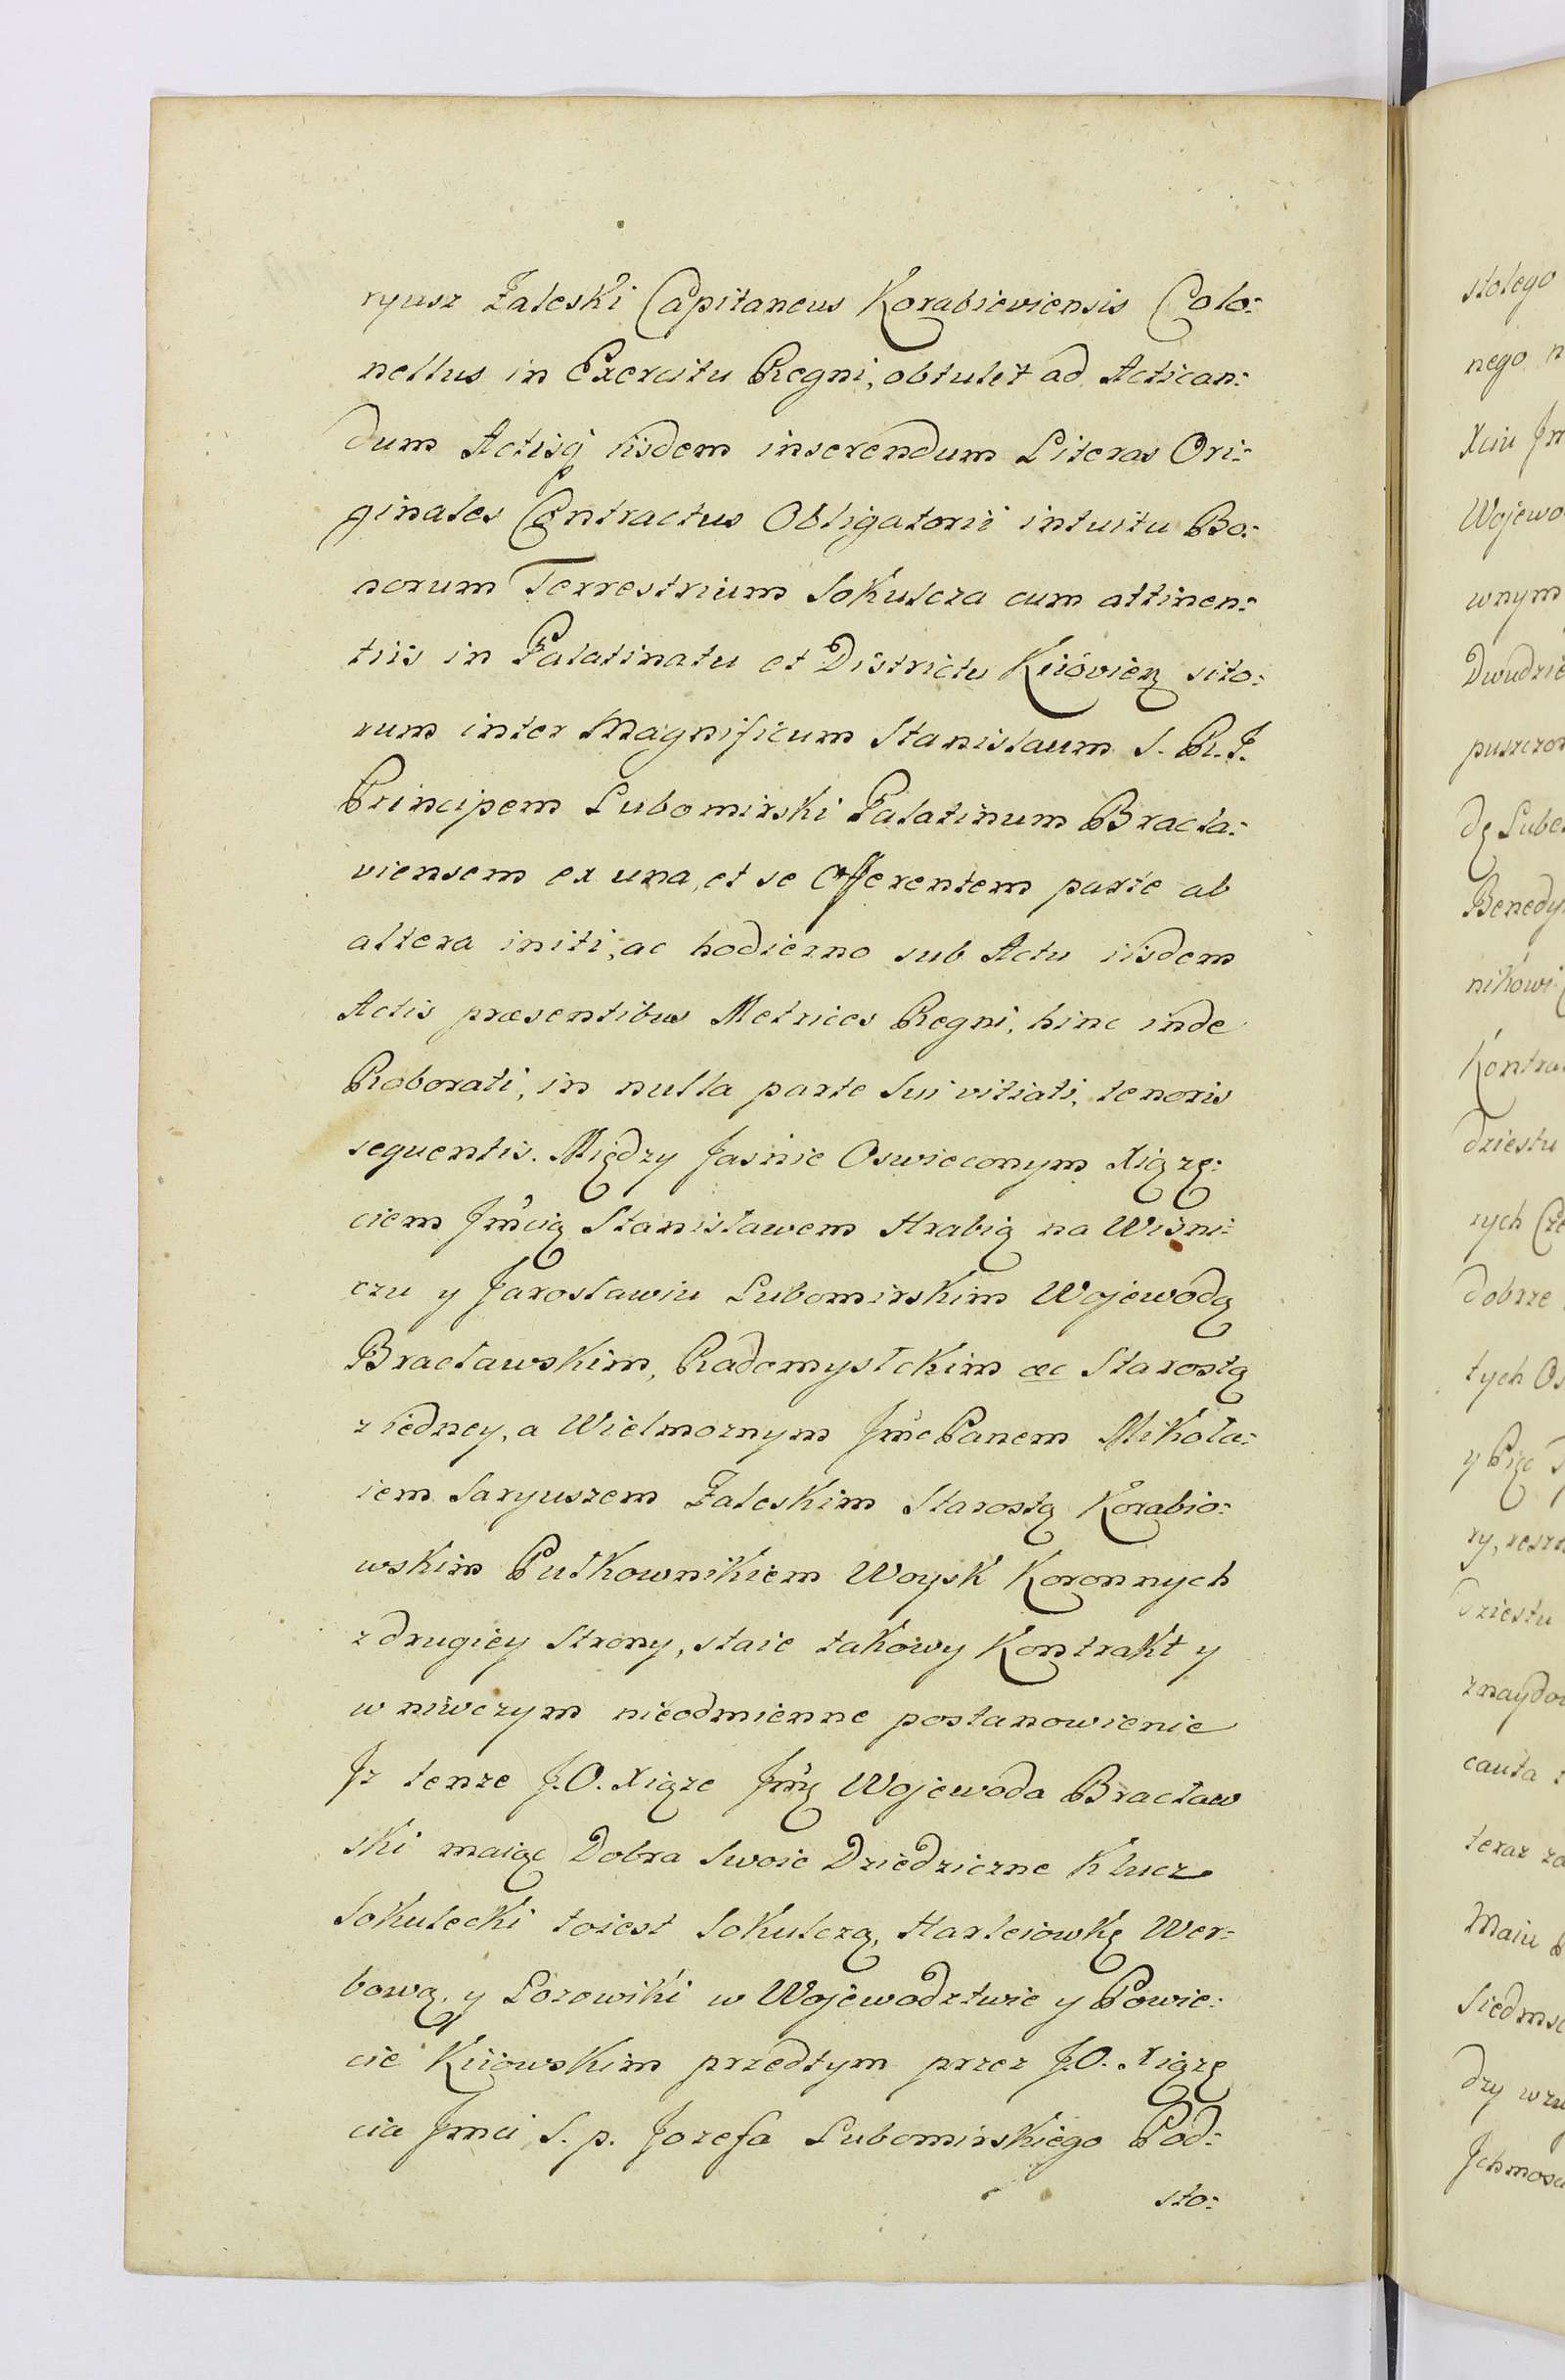 ryusz Zaleski Capitaneus Korabieviensis Colo:
nellus in Exercitu Regni, obtulit ad Actican:
dum Actisq iisdem inserendum Literas Ori:
ginales Contractus Obligatorii intuitu Bo:
norum Terrestrium Sokulcza cum attinen:
tiis in Palatinatu et Districtu Kiiovien sito:
rum inter Magnificum Stanislaum S. R. J.
Principem Lubomirski Palatinum Bracla:
viensem ex una, et se Offerentem parte ab
altera initi, ac hodierno sub Actu iisdem
Actis præsentibus Metrices Regni, hinc inde
Roborati, in nulla parte Sui vitiati, tenoris
sequentis. Między Jasnie Oswieconym Xiązę:
ciem Jmcią Stanisławem Hrabią na Wisni:
czu y Jarosławiu Lubomirskim Wojewodą
Bracławskim, Radomysłckim &c Starostą
z iedney, a Wielmoznym Jmc Panem Mikoła:
iem Saryuszem Zaleskim Starostą Korabio:
wskim Pułkownikiem Woysk Koronnych
z drugiey Strony, staie takowy Kontrakt y
w niwczym nieodmienne postanowienie
Jz tenze J.O. Xiąze Jmć Wojewoda Bracław
ski maiąc Dobra Swoie Dziedziczne Klucz
Sokulecki toiest Sokulczą, Harleiowkę Wer:
bową, y Lozowiki w Wojewodztwie y Powie:
cie Kiiowskim przedtym przez J.O. Xiązę
cia Jmci S. p. Jozefa Lubomirskiego Pod:
sto:
stolego
nego n
Xciu Jm
Wojewo
wnym
Dwudzie
puszczon
dę Lubo
Benedy
nikowi
Kontra
dziestu
rych Cze
dobrze
tych Os
y Pięc T
ry, resz
dziestu
znaydo
cauta
teraz za
Maiu
Siedms
dzy wza
Jchmosc